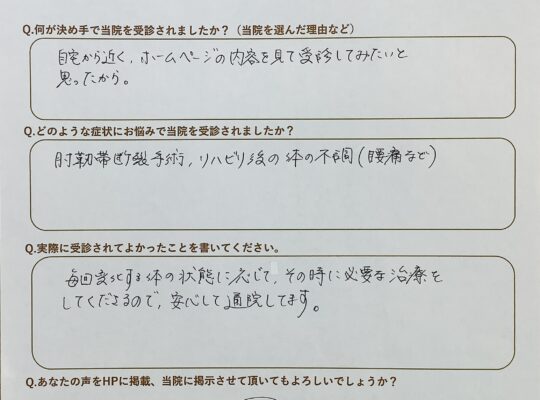 Q.何が決め手で当院を受診されましたか？（当院を選んだ理由など）
自宅から近く、ホームページの内容を見て受診してみたいと
思ったから。
Q.どのような症状にお悩みで当院を受診されましたか？
肘靭帯断裂手術，リハビリ後の体の不調(腰痛など)
Q.実際に受診されてよかったことを書いてください。
毎回変化する体の状態に応じて，その時に必要な治療を
してくださるので，安心して通院してます。
Q.あなたの声をHPに掲載、当院に掲示させて頂いてもよろしいでしょうか？